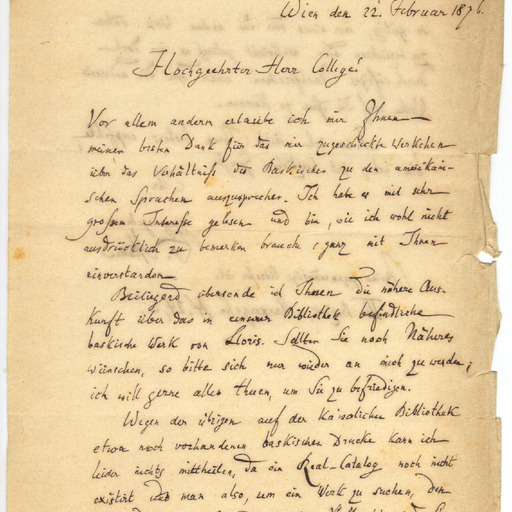 Wien den 22. Februar 1876.
Hochgeehrter Herr College!
Vor allem andern erlaube ich mir Ihnen
meinen besten Dank für das mir zugeschickte Werkchen
über das Verhältniß des Baskischen zu den amerikani-
schen Sprachen auszusprechen. Ich habe es mit sehr
großem Interesse gelesen und bin, wie ich wohl nicht
ausdrücklich zu bemerken brauche, ganz mit Ihnen
einverstanden
Beiliegend übersende ich Ihnen die nähere Aus-
kunft über das in unserer Bibliothek befindliche
baskische Werk von Lloris. Sollten Sie noch Näheres
wünschen, so bitte sich nur wieder an mich zu wenden;
ich will gerne alles thuen, um Sie zu befriedigen.
Wegen der übrigen auf der Kaiserlichen Bibliothek
etwa noch vorhandenen baskischen Drucke kann ich
leider nichts mittheilen, da ein Real-Catalog noch nicht
existirt und man also, um ein Werk zu suchen, den